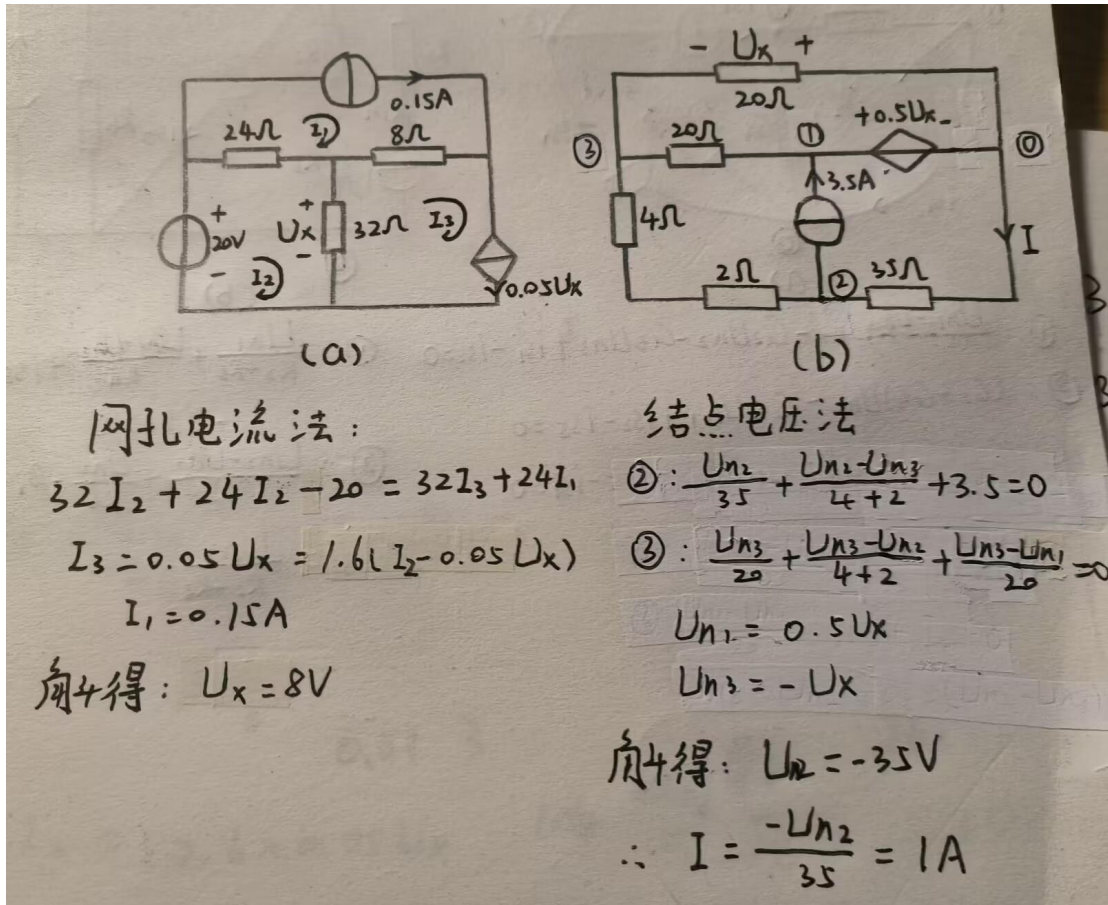 0.15A
24Ω
I₁
8Ω
+
20V
-
I₂
+
Ux
-
32Ω
I₃
0.05Ux
(a)
- Ux +
20Ω
③
20Ω
①
+0.5Ux-
⓪
3.5A
4Ω
I
2Ω
②
35Ω
(b)
网孔电流法:
32I₂+24I₂-20=32I₃+24I₁
I₃=0.05Ux=1.6(I₂-0.05Ux)
I₁=0.15A
解得: Ux=8V
结点电压法
②: Un2/35 + (Un2-Un3)/(4+2) +3.5=0
③: Un3/20 + (Un3-Un2)/(4+2) + (Un3-Un1)/20 =0
Un1=0.5Ux
Un3=-Ux
解得: Un2=-35V
∴ I = -Un2/35 = 1A